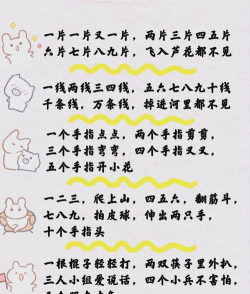 一片一片又一片，两片三片四五片
六片七片八九片，飞入芦花都不见
一线两线三四线，五六七八九十线
千条线，万条线，掉进河里都不见
一个手指点点，两个手指剪剪，
三个手指弯弯，四个手指叉叉，
五个手指开小花
一二三，爬上山，四五六，翻筋斗，
七八九，拍皮球，伸出两只手，
十个手指头
一根棍子轻轻打，两双筷子里外扒，
三人小组爱说话，四个小兵不害怕，